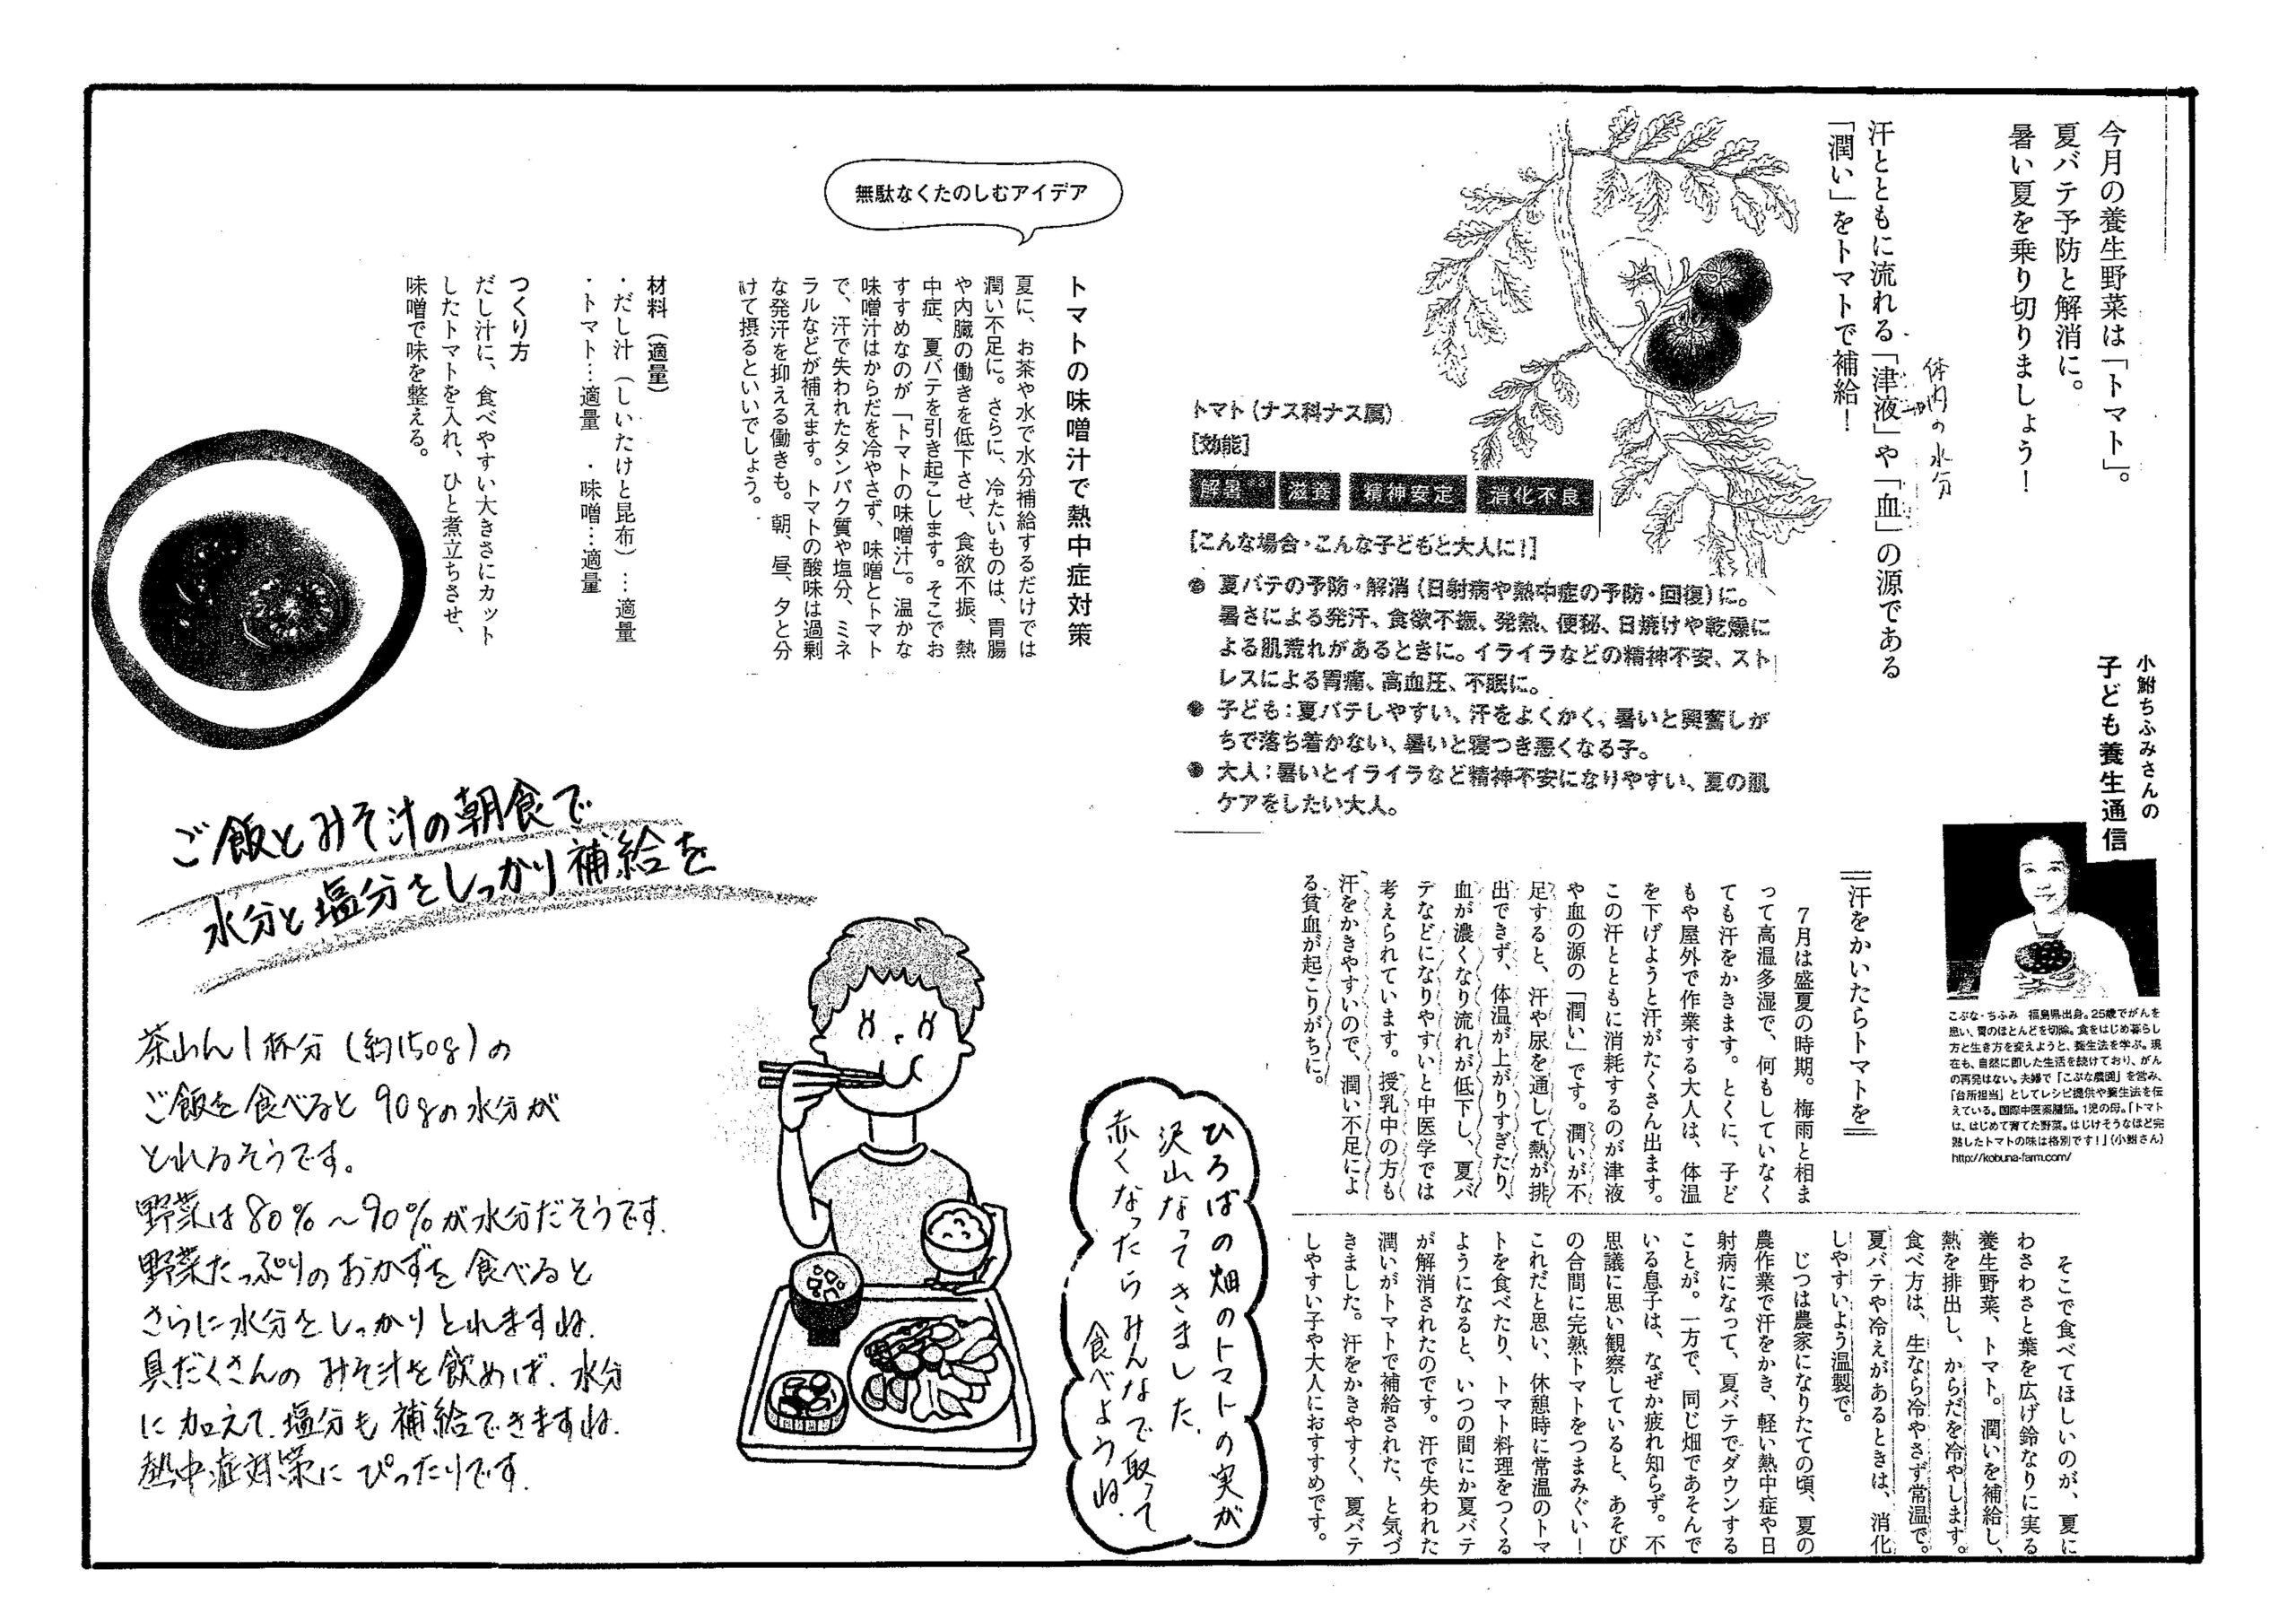 今月の養生野菜は「トマト」。
夏バテ予防と解消に。
暑い夏を乗り切りましょう！
小鮒ちふみさんの
子ども養生通信
こぶな・ちふみ　福島県出身。25歳でがんを
患い、胃のほとんどを切除。食をはじめ暮らし
方と生き方を変えようと、養生法を学ぶ。現
在も、自然に即した生活を続けており、がん
の再発はない。夫婦で「こぶな農園」を営み、
「台所担当」としてレシピ提供や養生法を伝
えている。国際中医薬膳師。1児の母。「トマト
は、はじめて育てた野菜。はじけそうなほど完
熟したトマトの味は格別です！」（小鮒さん）
http://kobuna-farm.com/
汗とともに流れる「津液」や「血」の源である
「潤い」をトマトで補給！
体内の水分
トマト（ナス科ナス属）
［効能］
解暑
滋養
精神安定
消化不良
［こんな場合・こんな子どもと大人に！］
● 夏バテの予防・解消（日射病や熱中症の予防・回復）に。
暑さによる発汗、食欲不振、発熱、便秘、日焼けや乾燥に
よる肌荒れがあるときに。イライラなどの精神不安、スト
レスによる胃痛、高血圧、不眠に。
● 子ども：夏バテしやすい、汗をよくかく、暑いと興奮しが
ちで落ち着かない、暑いと寝つき悪くなる子。
● 大人：暑いとイライラなど精神不安になりやすい、夏の肌
ケアをしたい大人。
汗をかいたらトマトを
７月は盛夏の時期。梅雨と相ま
って高温多湿で、何もしていなく
ても汗をかきます。とくに、子ど
もや屋外で作業する大人は、体温
を下げようと汗がたくさん出ます。
この汗とともに消耗するのが津液
や血の源の「潤い」です。潤いが不
足すると、汗や尿を通して熱が排
出できず、体温が上がりすぎたり、
血が濃くなり流れが低下し、夏バ
テなどになりやすいと中医学では
考えられています。授乳中の方も
汗をかきやすいので、潤い不足によ
る貧血が起こりがちに。
そこで食べてほしいのが、夏に
わさわさと葉を広げ鈴なりに実る
養生野菜、トマト。潤いを補給し、
熱を排出し、からだを冷やします。
食べ方は、生なら冷やさず常温で。
夏バテや冷えがあるときは、消化
しやすいよう温製で。
じつは農家になりたての頃、夏の
農作業で汗をかき、軽い熱中症や日
射病になって、夏バテでダウンする
ことが。一方で、同じ畑であそんで
いる息子は、なぜか疲れ知らず。不
思議に思い観察していると、あそび
の合間に完熟トマトをつまみぐい！
これだと思い、休憩時に常温のトマ
トを食べたり、トマト料理をつくる
ようになると、いつの間にか夏バテ
が解消されたのです。汗で失われた
潤いがトマトで補給された、と気づ
きました。汗をかきやすく、夏バテ
しやすい子や大人におすすめです。
無駄なくたのしむアイデア
トマトの味噌汁で熱中症対策
夏に、お茶や水で水分補給するだけでは
潤い不足に。さらに、冷たいものは、胃腸
や内臓の働きを低下させ、食欲不振、熱
中症、夏バテを引き起こします。そこでお
すすめなのが「トマトの味噌汁」。温かな
味噌汁はからだを冷やさず、味噌とトマト
で、汗で失われたタンパク質や塩分、ミネ
ラルなどが補えます。トマトの酸味は過剰
な発汗を抑える働きも。朝、昼、夕と分
けて摂るといいでしょう。
材料（適量）
・だし汁（しいたけと昆布）…適量
・トマト…適量　・味噌…適量
つくり方
だし汁に、食べやすい大きさにカット
したトマトを入れ、ひと煮立ちさせ、
味噌で味を整える。
ご飯とみそ汁の朝食で
水分と塩分をしっかり補給を
茶わん1杯分（約150g）の
ご飯を食べると90gの水分が
とれるそうです。
野菜は80％〜90％が水分だそうです.
野菜たっぷりのおかずを食べると
さらに水分をしっかりとれますね.
具だくさんのみそ汁を飲めば、水分
に加えて、塩分も補給できますね.
熱中症対策にぴったりです.
ひろばの畑のトマトの実が
沢山なってきました.
赤くなったらみんなで取って
食べようね.